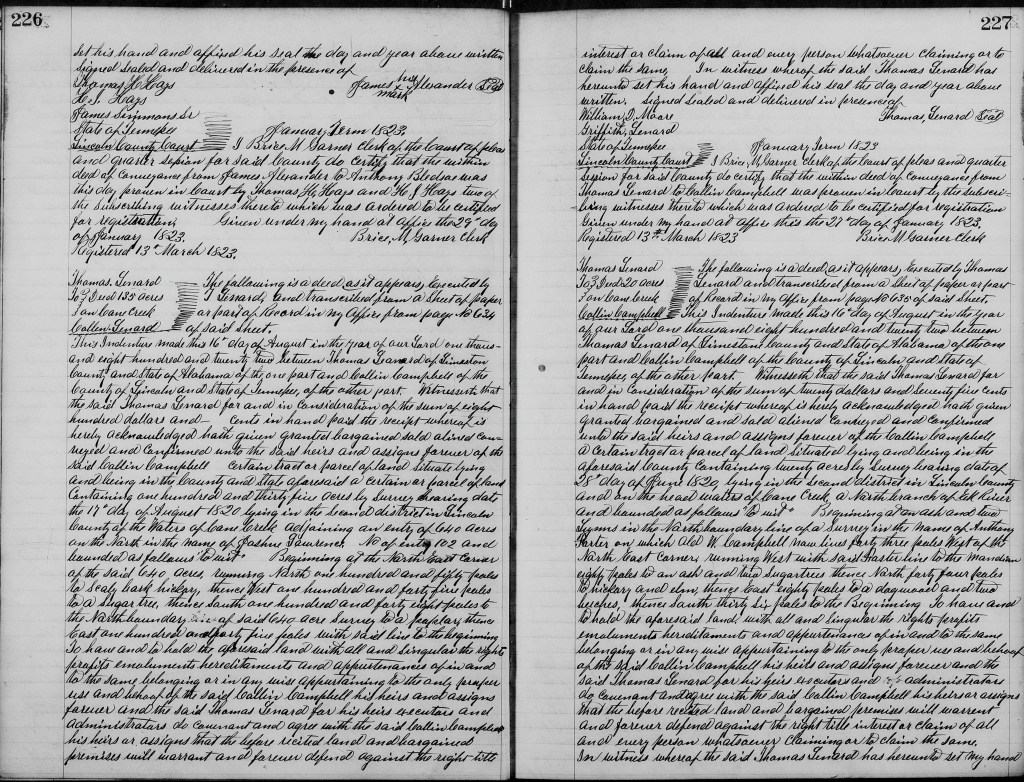 226
set his hand and affixed his seal the day and year above written
Signed Sealed and delivered in the presence of
Thomas H Hays James his x mark Alexander Seal
H. J. Hays
James Simmons Sr
State of Tennessee January Term 1823.
Lincoln County Court I Brice M. Garner Clerk of the Court of pleas
and quarter Session for said County do Certify that the within
deed of Conveyance from James Alexander to Anthony Bledsoe was
this day proven in Court by Thomas H. Hays and H. J Hays two of
the Subscribing witnesses thereto which was ordered to be Certified
for registration. Given under my hand at office the 29th day
of January 1823. Brice, M Garner Clerk
Registered 13th March 1823.
Thomas. Lenard The following is a deed as it appears, Executed by
To } Deed 135 acres T Lenard, and transcribed from a Sheet of paper
on Cane Creek or part of Record in my Office from page No 634
Collin Lenard of said Sheet.
This Indenture made this 16th day of August in the year of our Lord one thous-
and eight hundred and twenty two between Thomas Lenard of Limeston
County and State of Alabama of the one part and Collin Campbell of the
County of Lincoln and State of Tennessee, of the other part. Witnesseth that
the said Thomas Lenard for and in Consideration of the sum of eight
hundred dollars and cents in hand paid the receipt whereof is
hereby acknowledged hath given granted bargained sold aliened con-
veyed and Confirmed unto the said heirs and assigns forever of the
said Collin Campbell Certain tract or parcel of land Situate lying
and being in the County and State aforesaid a certain or parcel of land
Containing one hundred and thirty five acres by Survey bearing date
the 17th day of August 1820 lying in the Second district in Lincoln
County of the Waters of Cane Creek adjoining an entry of 640 acres
on the North in the name of Joshua Lawrence. No of entry 102 and
bounded as follows "to wit" Beginning at the North East Corner
of the said 640 acres, running North one hundred and fifty poles
to Scaly bark hickory, thence West one hundred and forty five poles
to a Sugar tree, thence South one hundred and forty eight poles to
the North boundary line of said 640 acre Survey to a poplar, thence
East one hundred and forty five poles with said line to the beginning
To have and to hold the aforesaid land with all and Singular the rights
profits emoluments hereditaments and appurtenances of in and
to the same belonging or in any wise appurtaining to the only proper
use and behoof of the said Collin Campbell his heirs and assigns
forever and the said Thomas Lenard for his heirs executors and
administrators do Covenant and agree with the said Collin Campbell
his heirs or assigns that the before recited land and bargained
premises will warrant and forever defend against the right title
227
interest or claim of all and every person whatsoever claiming or to
claim the same, In witness whereof the said Thomas Lenard has
hereunto set his hand and affixed his seal the day and year above
written. Signed Sealed and delivered in presence of
William, D. Moore Thomas, Lenard Seal
Griffith, Lenard
State of Tennessee January Term 1823
Lincoln County Court I Brice, M, Garner Clerk of the Court of pleas and quarter
Session for said County do Certify, that the within deed of Conveyance from
Thomas Lenard to Collin Campbell was proven in Court by the subscri-
bing witnesses thereto which was ordered to be Certified for registration
Given under my hand at Office this the 27th day of January 1823.
Registered 13th March 1823 Brice M Garner Clerk
Thomas Lenard The following is a deed, as it appears, Executed by Thomas
To } Deed 20 acres Lenard and transcribed from a sheet of paper or part
on Cane Creek of Record in my Office from page No 635 of said Sheet.
Collin Campbell This Indenture made this 16th day of August in the year
of our Lord one thousand eight hundred and twenty two between
Thomas Lenard of Limeston County and State of Alabama of the one
part and Collin Campbell of the County of Lincoln and State of
Tennessee, of the other part Witnesseth that the said Thomas Lenard for
and in Consideration of the sum of twenty dollars and Seventy five cents
in hand paid the receipt whereof is herby acknowledged hath given
granted bargained and sold aliened Conveyed and Confirmed
unto the said heirs and assigns forever of the Collin Campbell
a Certain tract or parcel of land Situated lying and being in the
aforesaid County Containing twenty acres by Survey bearing date of
28th day of June 1820, lying in the Second district in Lincoln County
and on the head waters of Cane Creek, a North branch of Elk River
and bounded as follows "to wit" Beginning at an ash and two
Gums in the North boundary line of a Survey in the name of Anthony
Foster on which Ald W. Campbell now lives forty three poles West of the
North East Corner, running West with said Foster line to the Meridian
eighty poles to an ash and two Sugartrees thence North forty four poles
to hickory and elm, thence East eighty poles to a dogwood and two
beeches, thence South thirty Six poles to the Beginning To have and
to hold the aforesaid land, with all and Singular the rights profits
emoluments hereditaments and appurtenances of in and to the same
belonging or in any wise appurtaining to the only proper use and behoof
of the said Collin Campbell his heirs and assigns forever and the
said Thomas Lenard for his heirs executors and administrators
do covenant and agree with the said Collin Campbell his heirs or assigns
that the before recited land and bargained premises will warrant
and forever defend against the right title interest or claim of all
and every person whatsoever claiming or to claim the same.
In witness whereof the said Thomas Lenard has hereunto set my hand